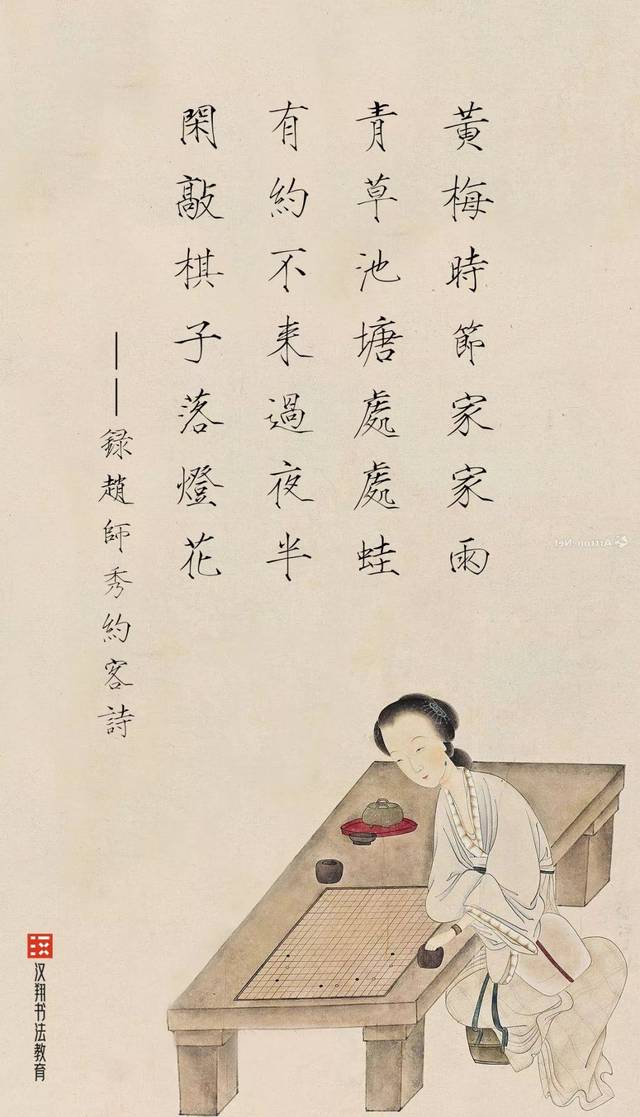 黃梅時節家家雨
青草池塘處處蛙
有約不来過夜半
閑敲棋子落燈花
——録趙師秀約客詩
汉翔书法教育
Artron.Net